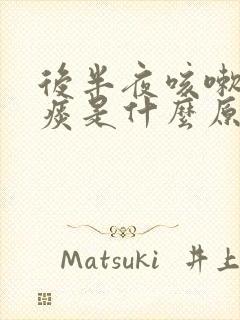 後半夜咳嗽
痰是什麼原
Matsuki 井上